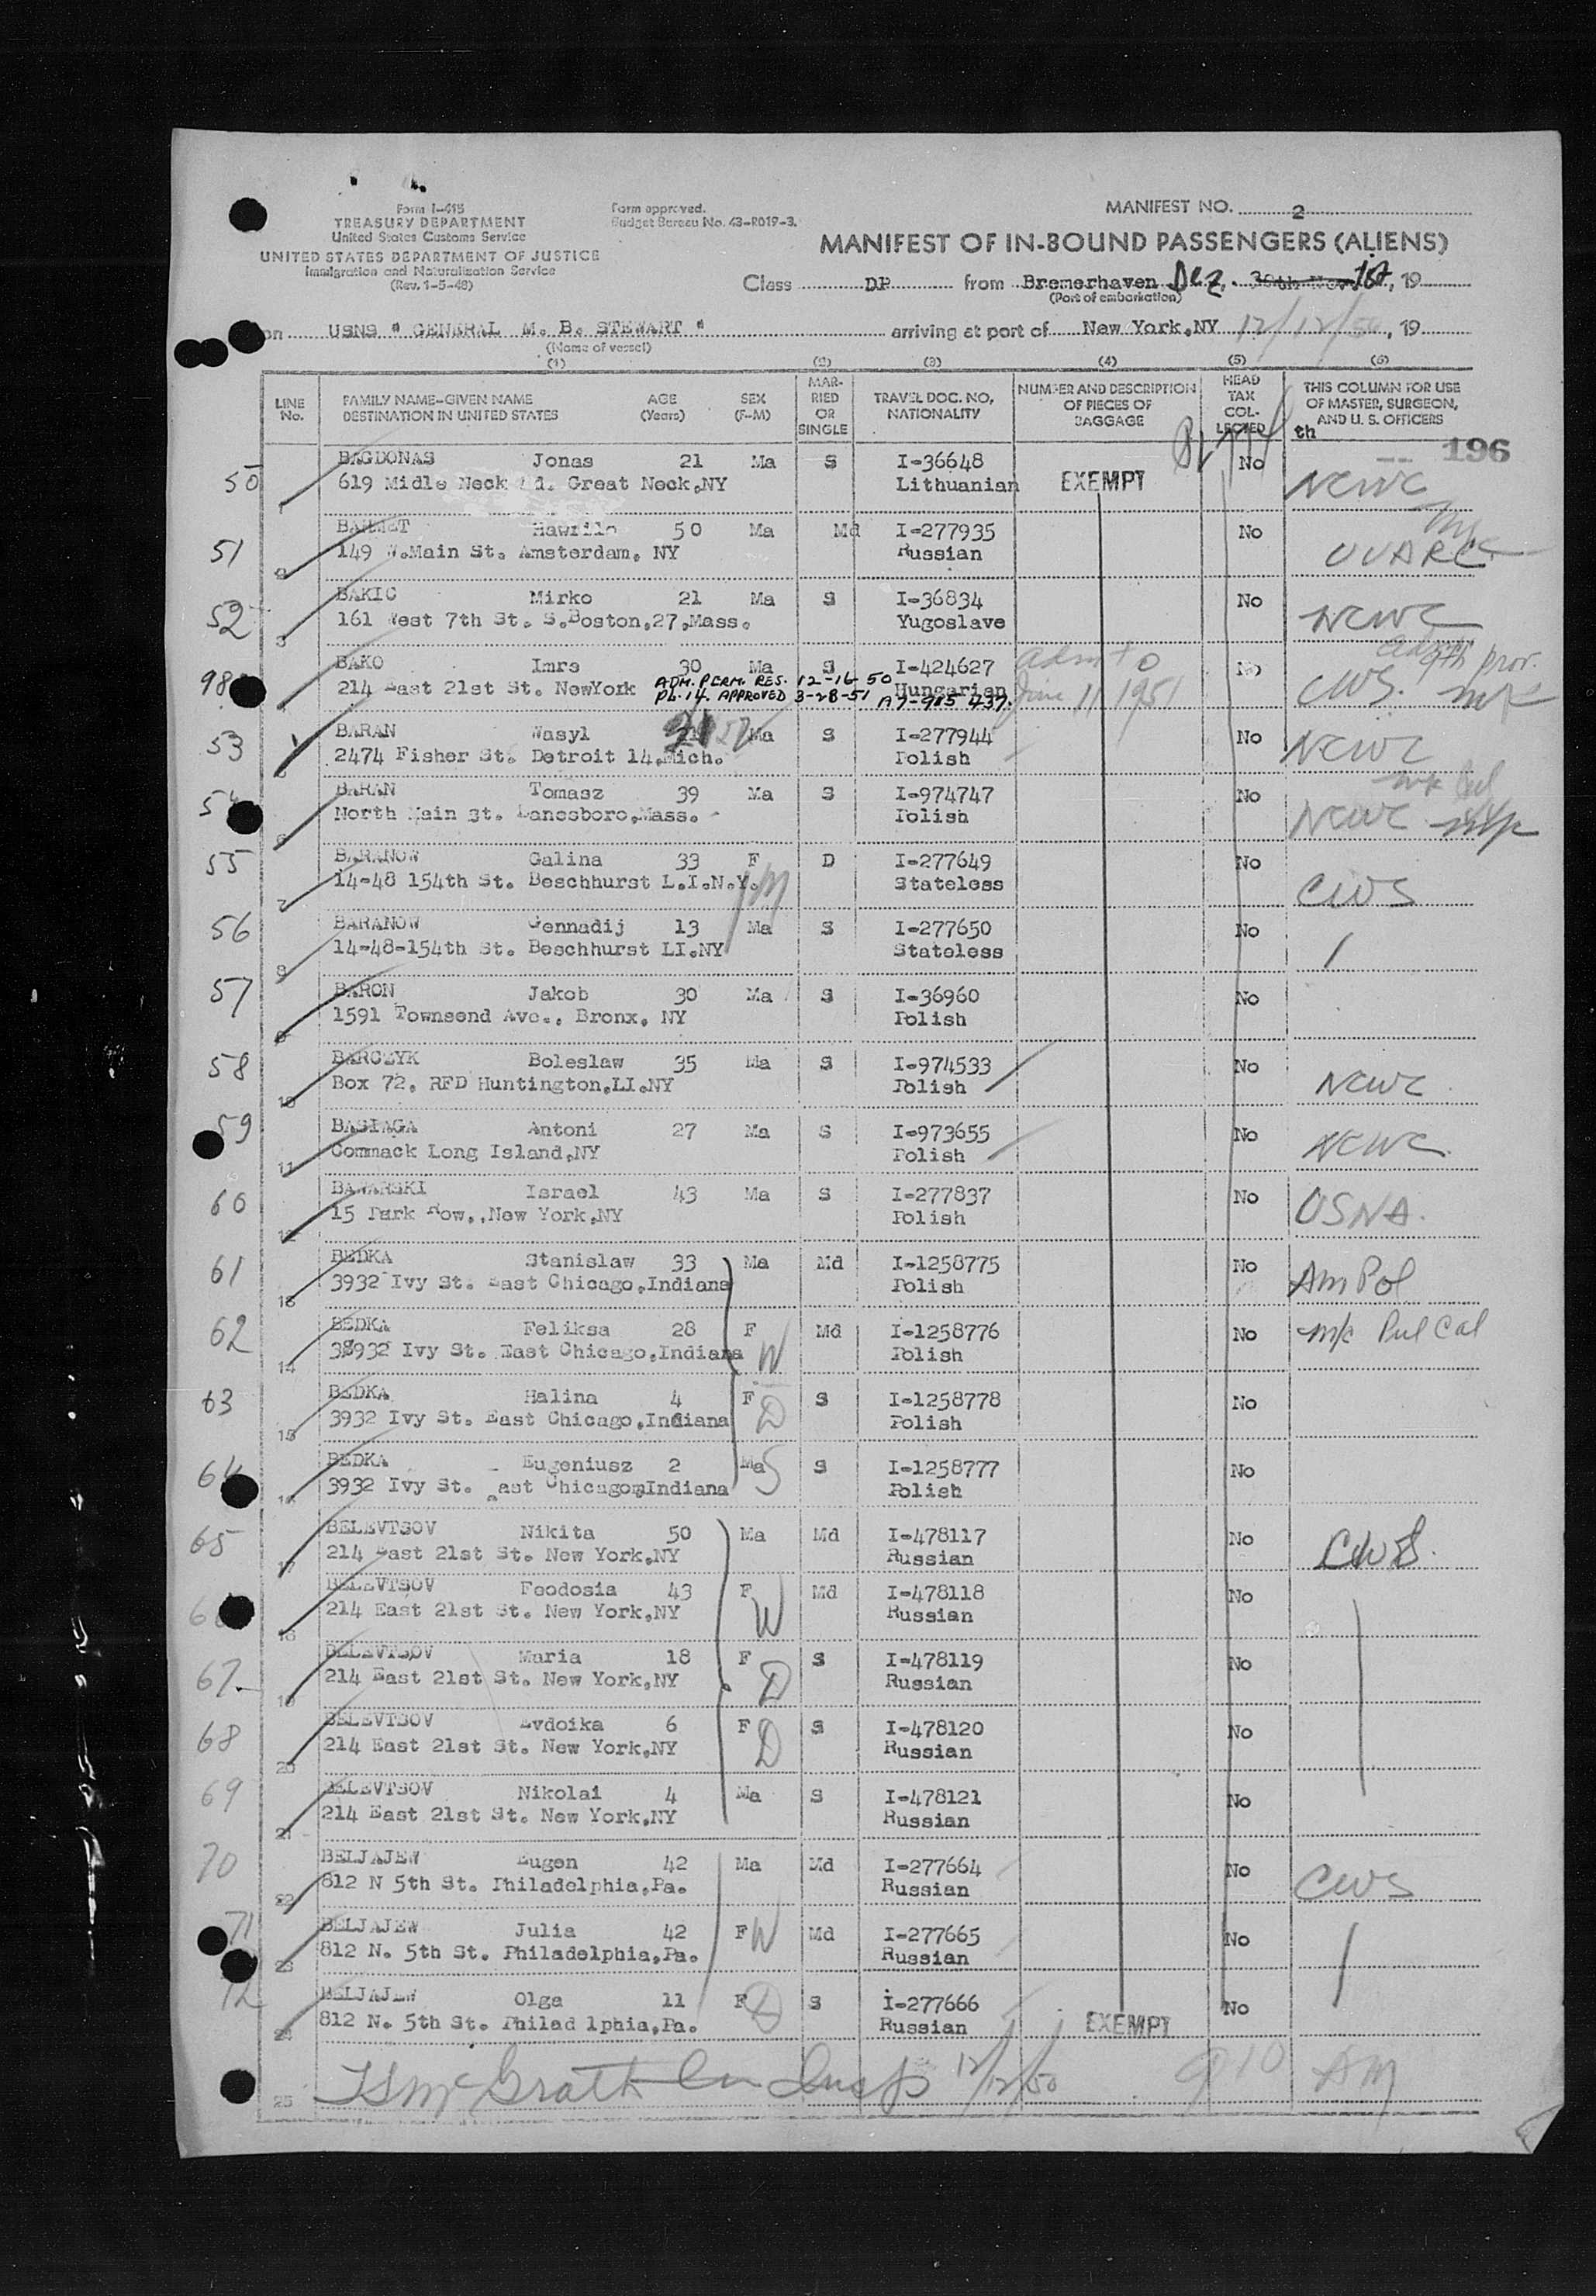 Form I-415
TREASURY DEPARTMENT
United States Customs Service
UNITED STATES DEPARTMENT OF JUSTICE
Immigration and Naturalization Service
(Rev. 1-5-48)
Form approved.
Budget Bureau No. 43-R019-3.
MANIFEST NO. 2
MANIFEST OF IN-BOUND PASSENGERS (ALIENS)
Class DP from Bremerhaven Dez. 1st, 19
(Port of embarkation)
on USNS " GENERAL M. B. STEWART " arriving at port of New York,NY 12/12/50, 19
(Name of vessel)
(1) (2) (3) (4) (5) (6)
LINE No.
FAMILY NAME-GIVEN NAME DESTINATION IN UNITED STATES
AGE (Years)
SEX (F-M)
MARRIED OR SINGLE
TRAVEL DOC. NO, NATIONALITY
NUMBER AND DESCRIPTION OF PIECES OF BAGGAGE
HEAD TAX COLLECTED
THIS COLUMN FOR USE OF MASTER, SURGEON, AND U. S. OFFICERS
th 196
50 BAGDONAS Jonas 21 Ma S I-36648 EXEMPT No NCWC
1 619 Midle Neck d. Great Neck,NY Lithuanian
51 Hawrilo 50 Ma Md I-277935 No
2 149 W.Main St. Amsterdam, NY Russian
52 BAKIC Mirko 21 Ma S I-36834 No NCWC
3 161 West 7th St. S.Boston,27,Mass. Yugoslave
BAKO Imre 30 Ma S I-424627 Adm to No
4 214 East 21st St. NewYork ADM. PERM. RES. 12-16-50 Hungarian June 11 1951 CWS.
PL.14. APPROVED 3-28-51 A7-985 437.
53 BARAN Wasyl 21 Ma S I-277944 No NCWC
5 2474 Fisher St. Detroit 14,Mich. Polish
54 BARAN Tomasz 39 Ma S I-974747 No
6 North Main st. Lanesboro,Mass. Polish NCWC
55 BARANOW Galina 33 F D I-277649 No
7 14-48 154th St. Beschhurst L.I.N.Y. M Stateless CWS
56 BARANOW Gennadij 13 Ma S I-277650 No
8 14-48-154th St. Beschhurst LI.NY Stateless
57 BARON Jakob 30 Ma S I-36960 No
9 1591 Townsend Ave., Bronx, NY Polish
58 BARCZYK Boleslaw 35 Ma S I-974533 No
10 Box 72, RFD Huntington,LI.NY Polish NCWC
59 BASIAGA Antoni 27 Ma S I-973655 No
11 Commack Long Island,NY Polish NCWC
60 BAWARSKI Israel 43 Ma S I-277837 No USNA.
12 15 Park Row,.New York,NY Polish
61 BEDKA Stanislaw 33 Ma Md I-1258775 No Am Pol
13 3932 Ivy St. East Chicago,Indiana Polish
62 BEDKA Feliksa 28 F Md I-1258776 No m/c Pul Cal
14 38932 Ivy St. East Chicago,Indiana W Polish
63 BEDKA Halina 4 F S I-1258778 No
15 3932 Ivy St. East Chicago,Indiana D Polish
64 BEDKA Eugeniusz 2 Ma S I-1258777 No
16 3932 Ivy St. East Chicago,Indiana S Polish
65 BELEVTSOV Nikita 50 Ma Md I-478117 No CWS.
17 214 East 21st St. New York,NY Russian
BELEVTSOV Feodosia 43 F Md I-478118 No
18 214 East 21st St. New York,NY W Russian
67 BELEVTSOV Maria 18 F S I-478119 No
19 214 East 21st St. New York,NY D Russian
68 BELEVTSOV Evdoika 6 F S I-478120 No
20 214 East 21st St. New York,NY D Russian
69 BELEVTSOV Nikolai 4 Ma S I-478121 No
21 214 East 21st St. New York,NY Russian
70 BELJAJEW Eugen 42 Ma Md I-277664 No CWS
22 812 N 5th St. Philadelphia,Pa. Russian
71 BELJAJEW Julia 42 F W Md I-277665 No
23 812 N. 5th St. Philadelphia,Pa. Russian
72 BELJAJEW Olga 11 F D S I-277666 No
24 812 N. 5th St. Philad lphia,Pa. Russian EXEMPT
25 McGrath Insp 12/12/50 910 AM